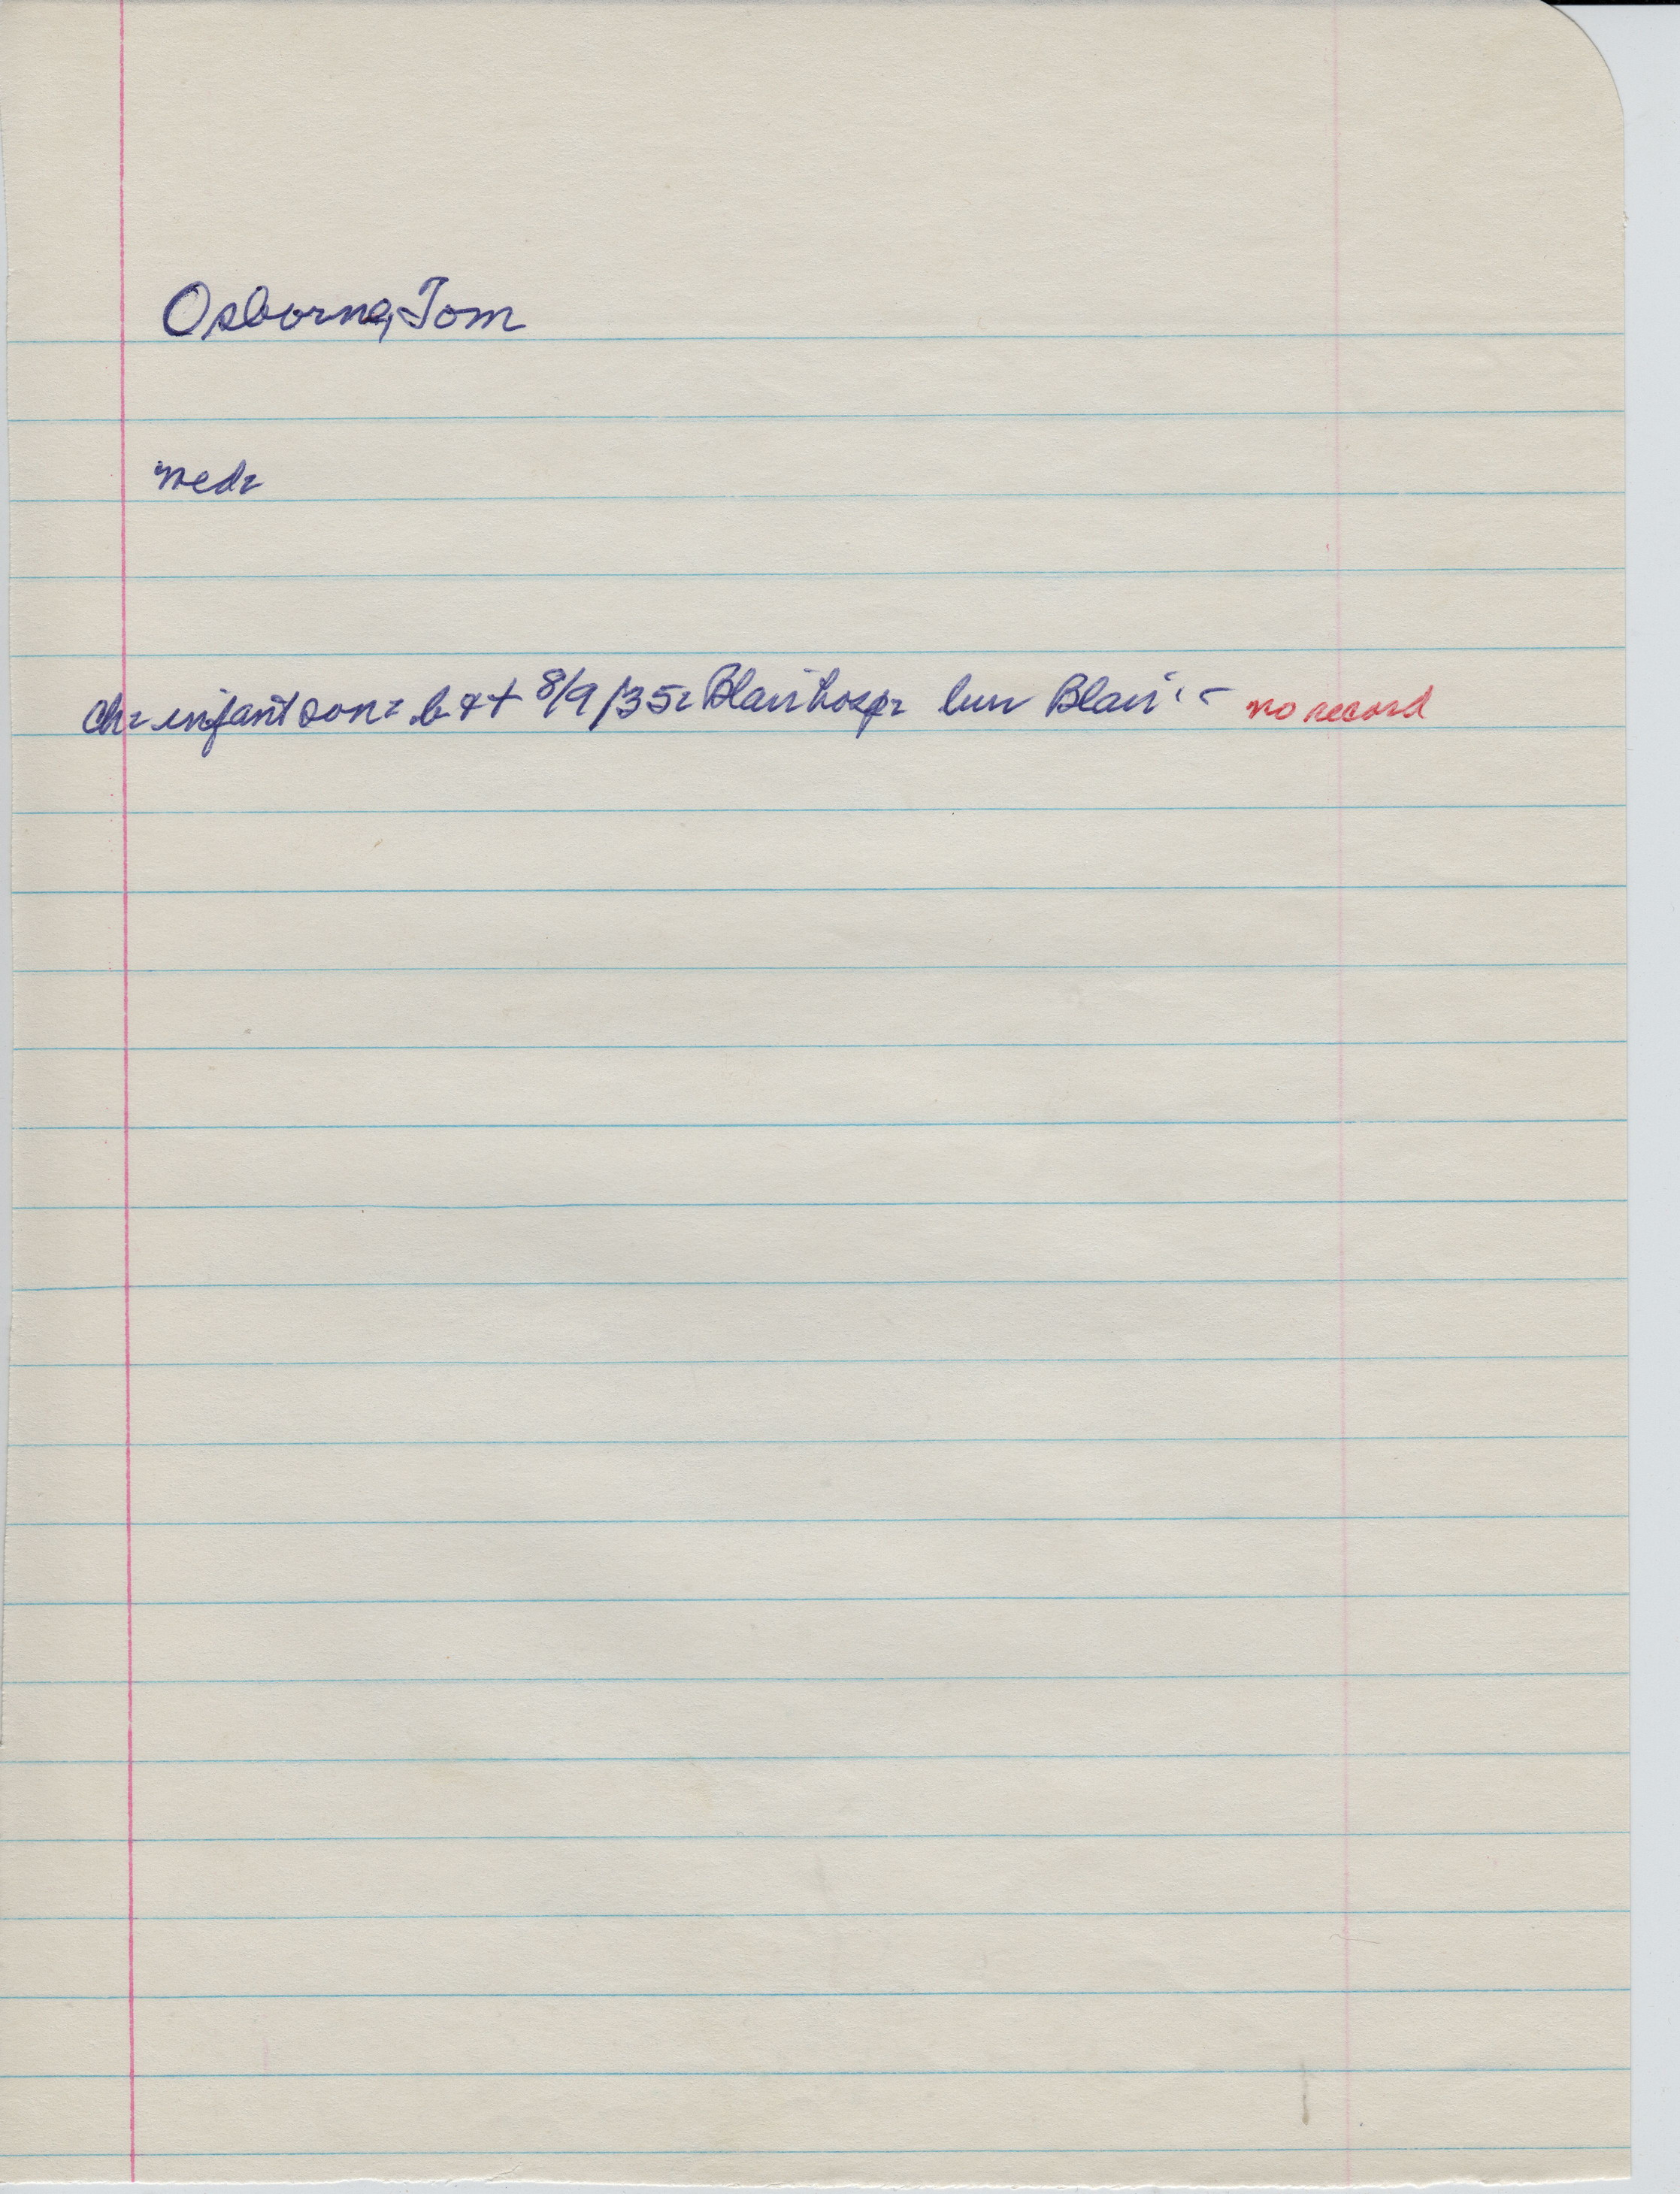 Osborne, Tom
med=
ch= infant son= b & + 8/9/35= Blair hosp= bur Blair - no record